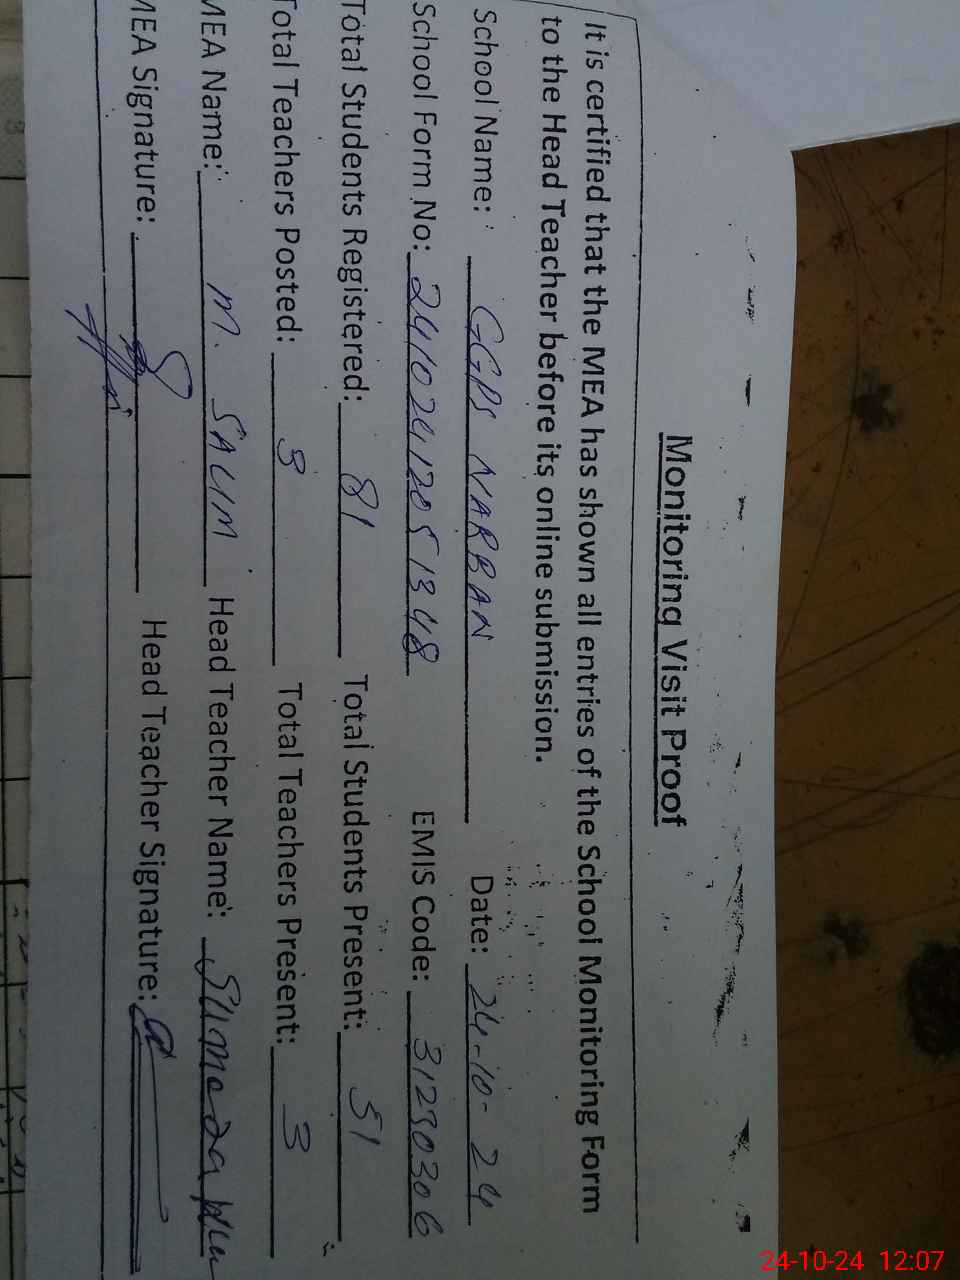 Monitoring Visit Proof
It is certified that the MEA has shown all entries of the School Monitoring Form
to the Head Teacher before its online submission.
School Name: GGPS NARBAN Date: 24-10-24
School Form No: 24102412051348 EMIS Code: 31230306
Total Students Registered: 81 Total Students Present: 51
Total Teachers Posted: 3 Total Teachers Present: 3
MEA Name: M. SALIM Head Teacher Name:
MEA Signature: Head Teacher Signature:
24-10-24 12:07